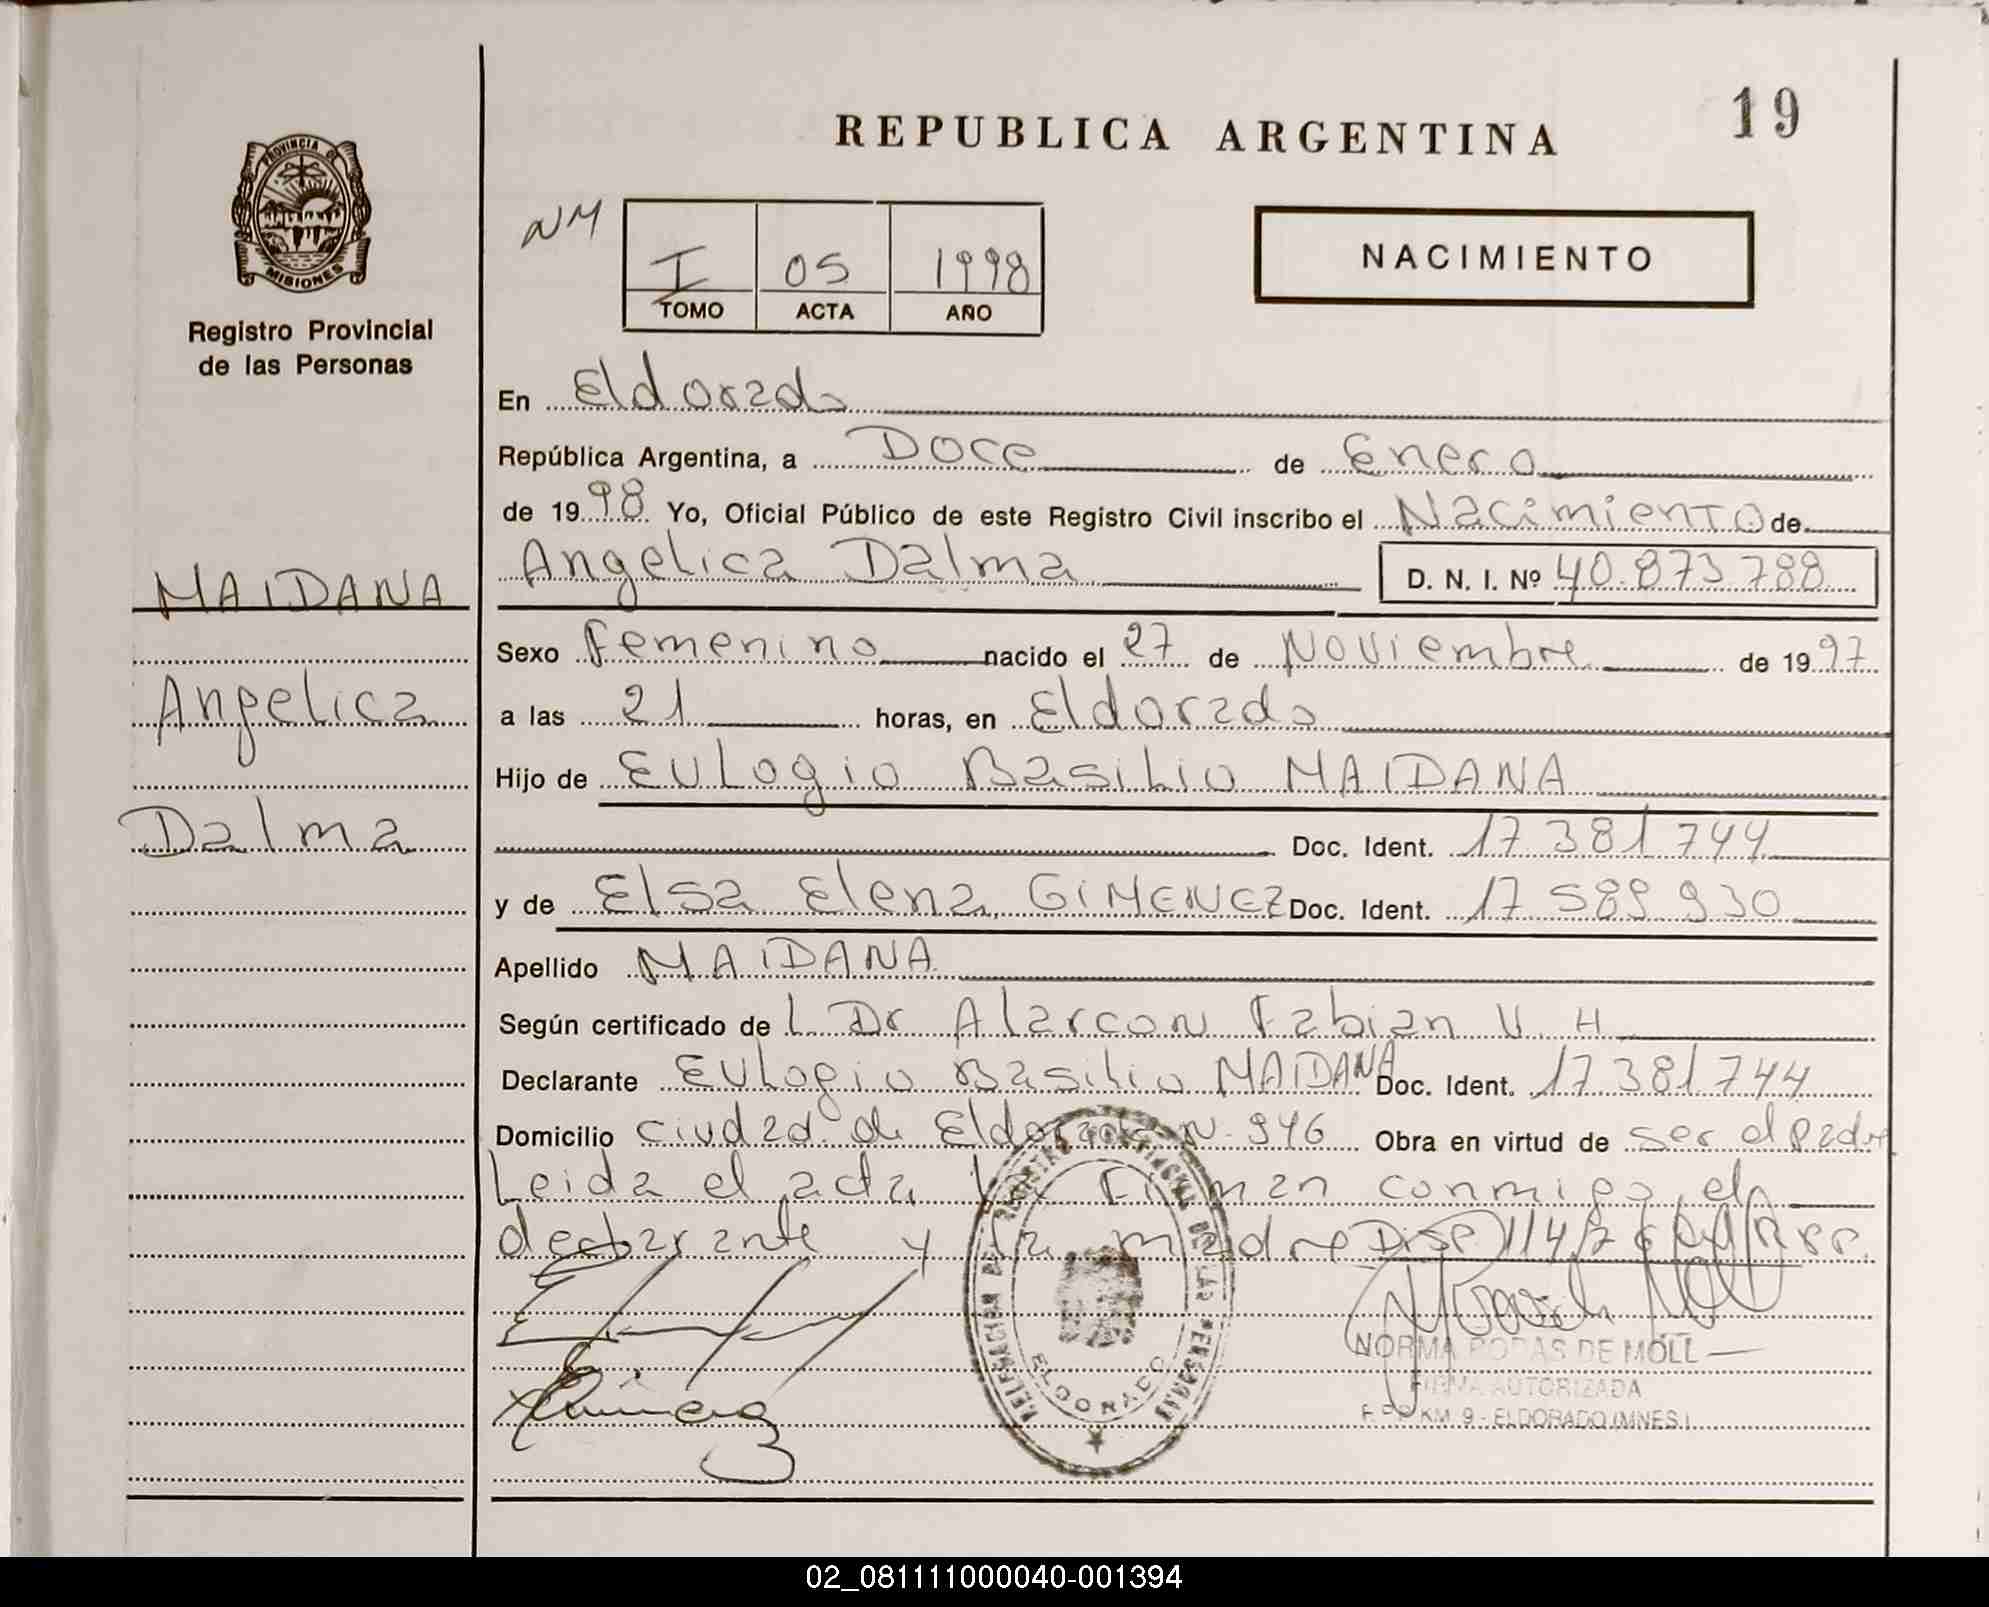 REPUBLICA ARGENTINA
19
PROVINCIA DE
MISIONES
Registro Provincial
de las Personas
NM
I 05 1998
TOMO ACTA AÑO
NACIMIENTO
MAIDANA
Angelica
Dalma
En Eldorado
República Argentina, a Doce de Enero
de 1998 Yo, Oficial Público de este Registro Civil inscribo el Nacimiento de
Angelica Dalma D. N. I. Nº 40.873.788
Sexo Femenino nacido el 27 de Noviembre de 1997
a las 21 horas, en Eldorado
Hijo de Eulogio Basilio MAIDANA
Doc. Ident. 17 381 744
y de Elsa Elena GIMENEZ Doc. Ident. 17 589 930
Apellido MAIDANA
Según certificado de L Dr Alarcon Fabian V. H
Declarante Eulogio Basilio MAIDANA Doc. Ident. 17 381 744
Domicilio ciudad de Eldorado N 946 Obra en virtud de ser el padre
Leida el acta la firman conmigo el
declarante y la madre Disp 114/76
NORMA RODAS DE MOLL
FIRMA AUTORIZADA
KM. 9 - ELDORADO (MNES.)
ELDORADO
02_081111000040-001394